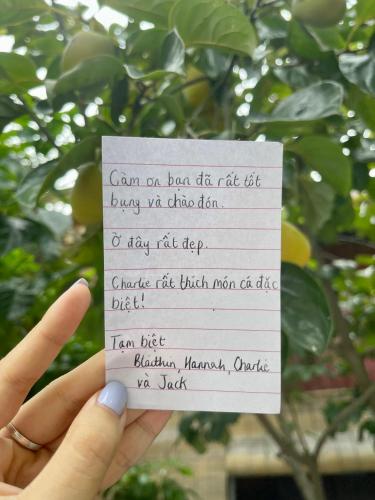 Cảm ơn bạn đã rất tốt
bụng và chào đón.
Ở đây rất đẹp.
Charlie rất thích món cá đặc
biệt!
Tạm biệt
Bláithín, Hannah, Charlie
và Jack